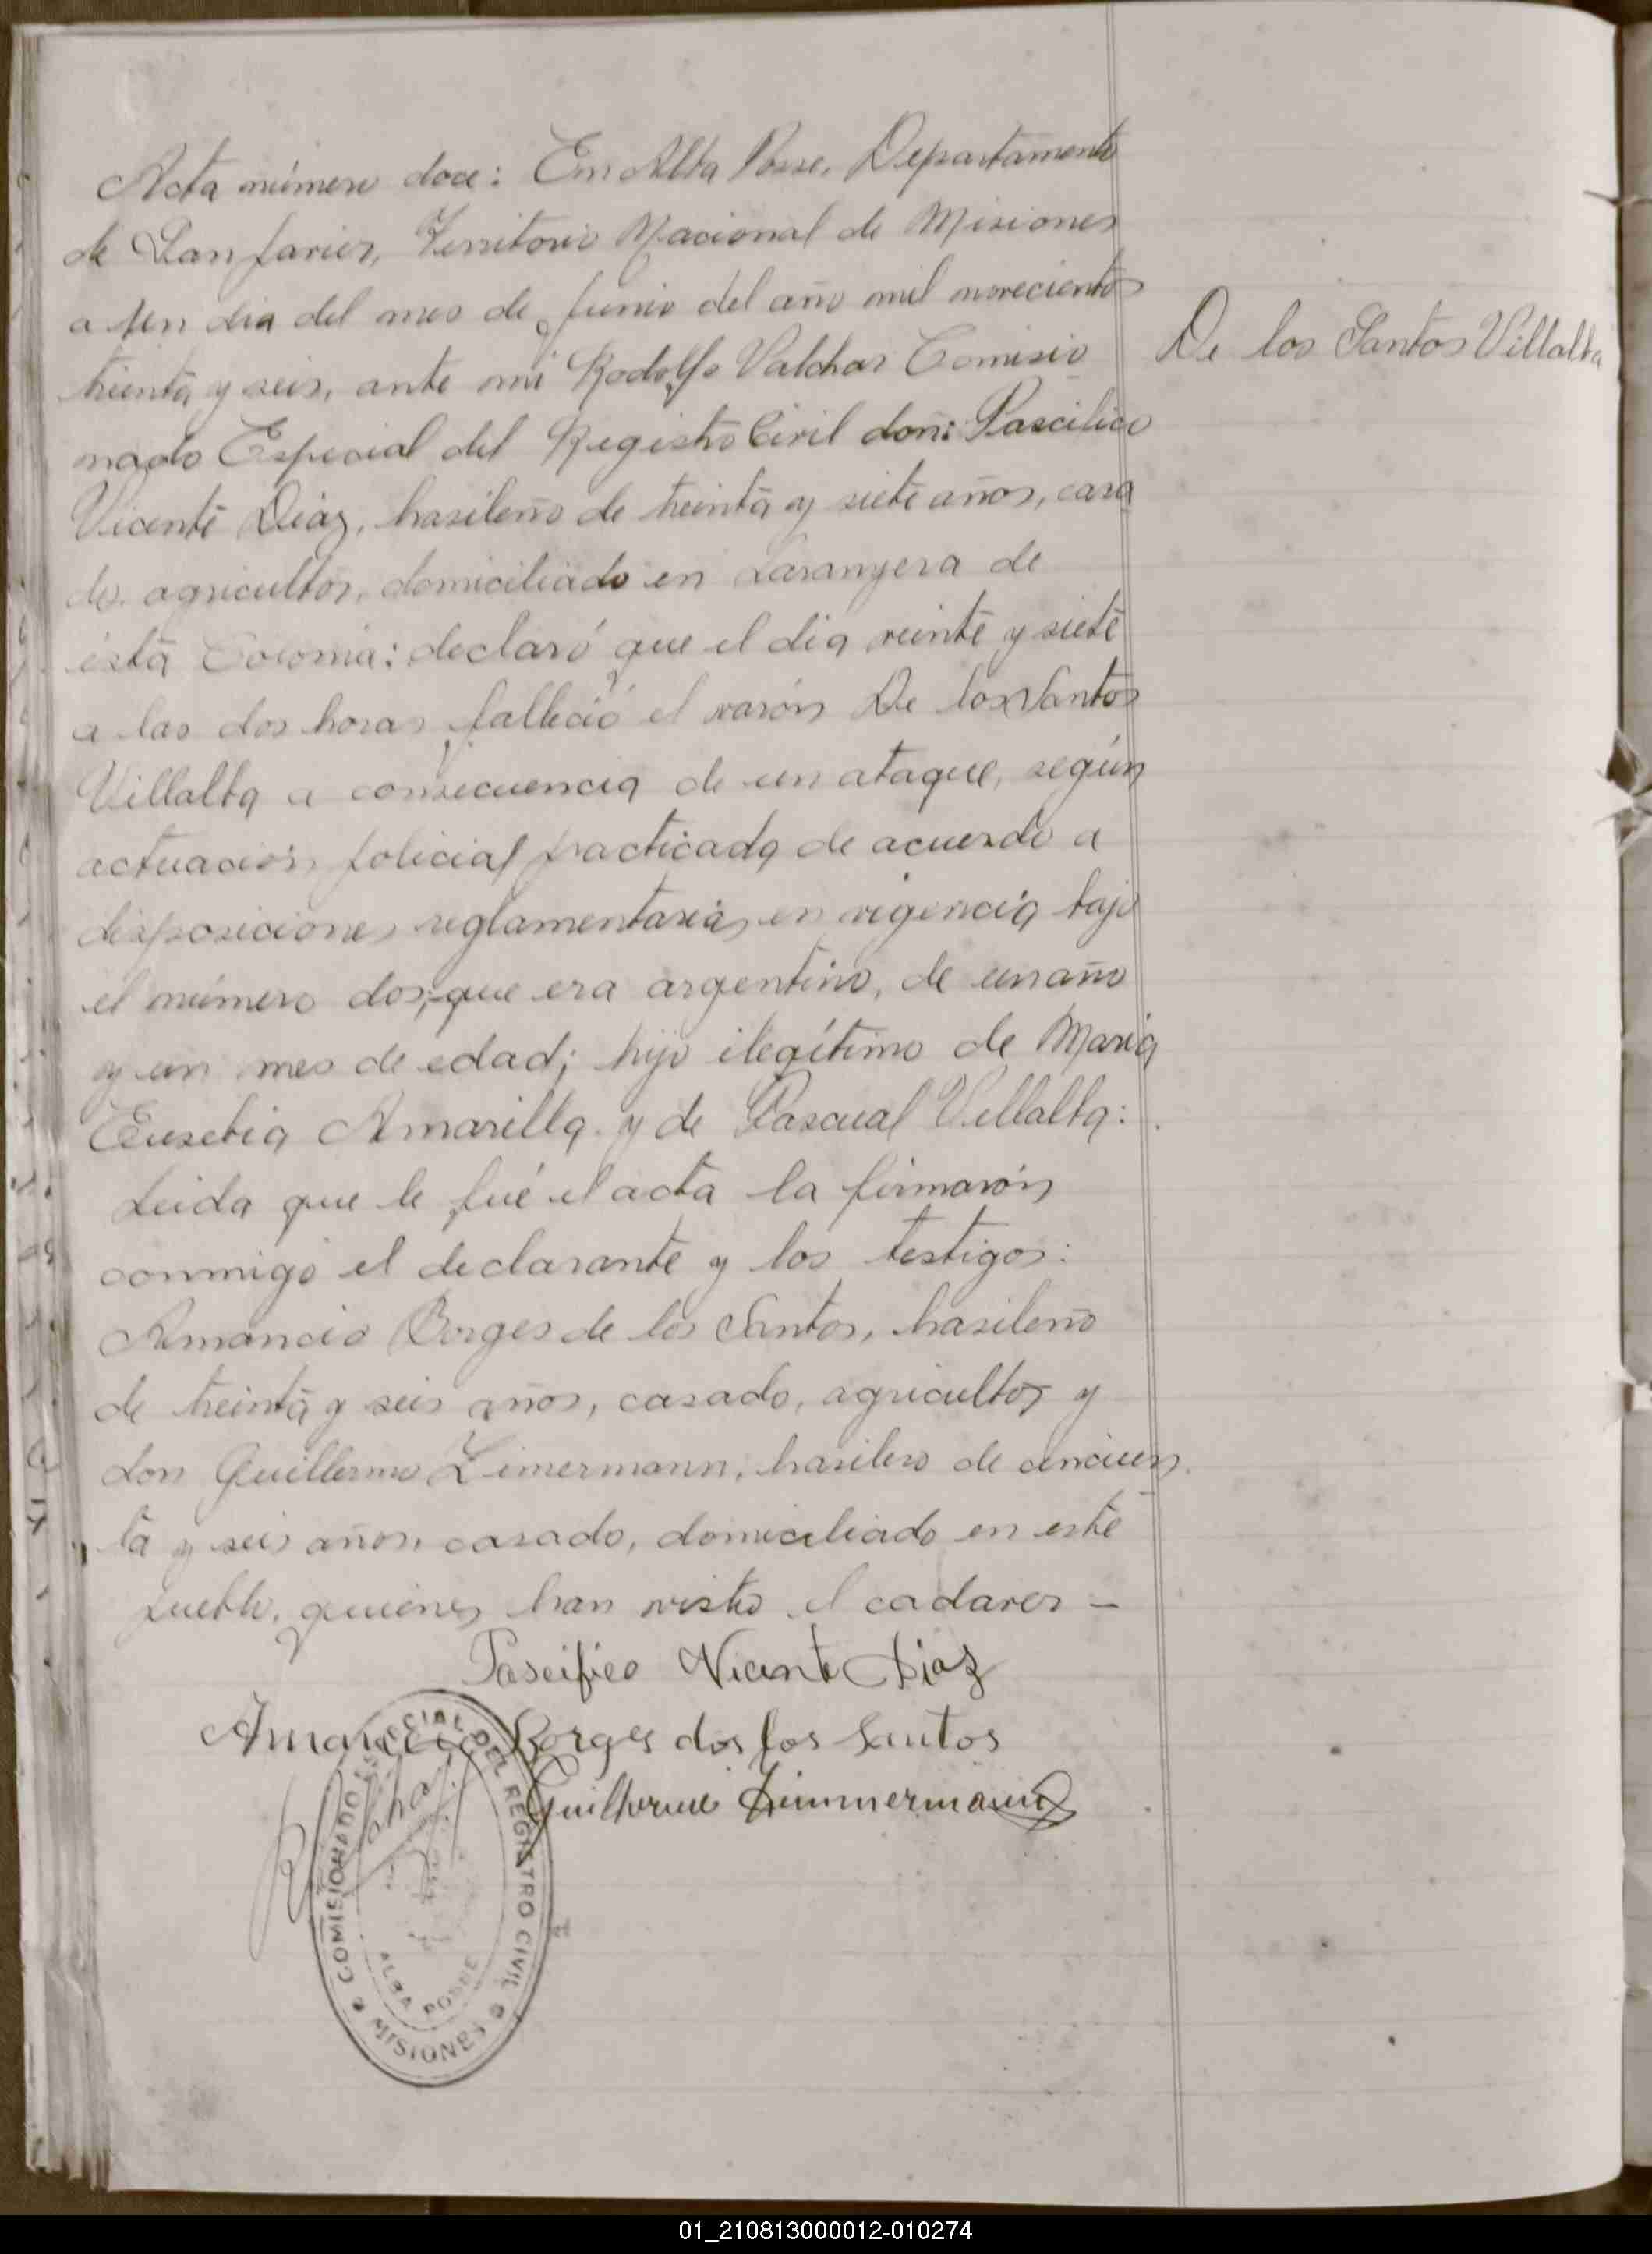 Acta número doce: En Alba Posse, Departamento
de San Javier, Territorio Nacional de Misiones
a un dia del mes de Junio del año mil novecientos
treinta y seis, ante mi Rodolfo Valchar Comisio
nado Especial del Registro Civil don: Pascifico
Vicente Diaz, brasileño de treinta y siete años, casa
do, agricultor, domiciliado en Laranyera de
ésta Coronia: declaró que el dia veinte y siete
a las dos horas falleció el varón De los Santos
Villalba a consecuencia de un ataque, según
actuación policial practicada de acuerdo a
disposiciones reglamentarias en vigencia bajo
el número dos; que era argentino, de un año
y un mes de edad; hijo ilegítimo de Maria
Eusebia Amarilla y de Pascual Villalba:
Leida que le fué el acta la firmarón
conmigo el declarante y los testigos:
Amancio Borges de los Santos, brasileño
de treinta y seis años, casado, agricultor y
don Guillermo Zimermann, brasilero de cincuen
ta y seis años, casado, domiciliado en este
pueblo, quienes han visto el cadaver –
De los Santos Villalba
Pascifico Vicente Diaz
Amancio Borges dos los Santos
Guilherme Zimmermann
COMISIONADO ESPECIAL DEL REGISTRO CIVIL
ALBA POSSE
MISIONES
01_210813000012-010274